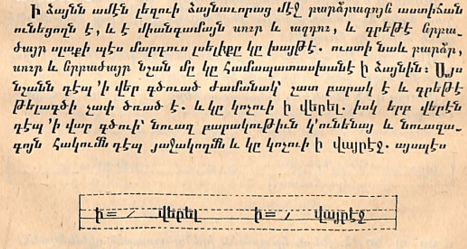 ի ձայնն ամէն լեզուի ձայնաւորաց մէջ բարձրագոյն աստիճան
ունեցողն է, և է միանգամայն սուր և ազդու, և գրեթէ նրբա-
ծայր սլաքի պէս մարդուս լսելիքը կը խայթէ. ուստի նաև բարձր,
սուր և նրբածայր նշան մը կը համապատասխանէ ի ձայնին: Այս
նշանն դէպ 'ի վեր գծուած ժամանակ՝ շատ բարակ է և գրեթէ
թելադգի չափ ծռած է. և կը կոչուի ի վերել. իսկ երբ վերէն
դէպ 'ի վար գծուի՝ նուազ բարակութիւն կ'ունենայ և նուազա-
գոյն հակումն դէպ յաջակողմն և կը կոչուի ի վայրէջ. այսպէս
ի = / վերել ի = / վայրէջ